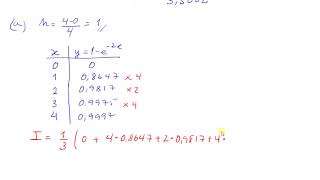 (a) h = 4-0/4 = 1//
x y = 1 - e^-2x
0 0
1 0,8647 × 4
2 0,9817 × 2
3 0,9975 × 4
4 0,9997
I = 1/3 ( 0 + 4·0,8647 + 2·0,9817 + 4·